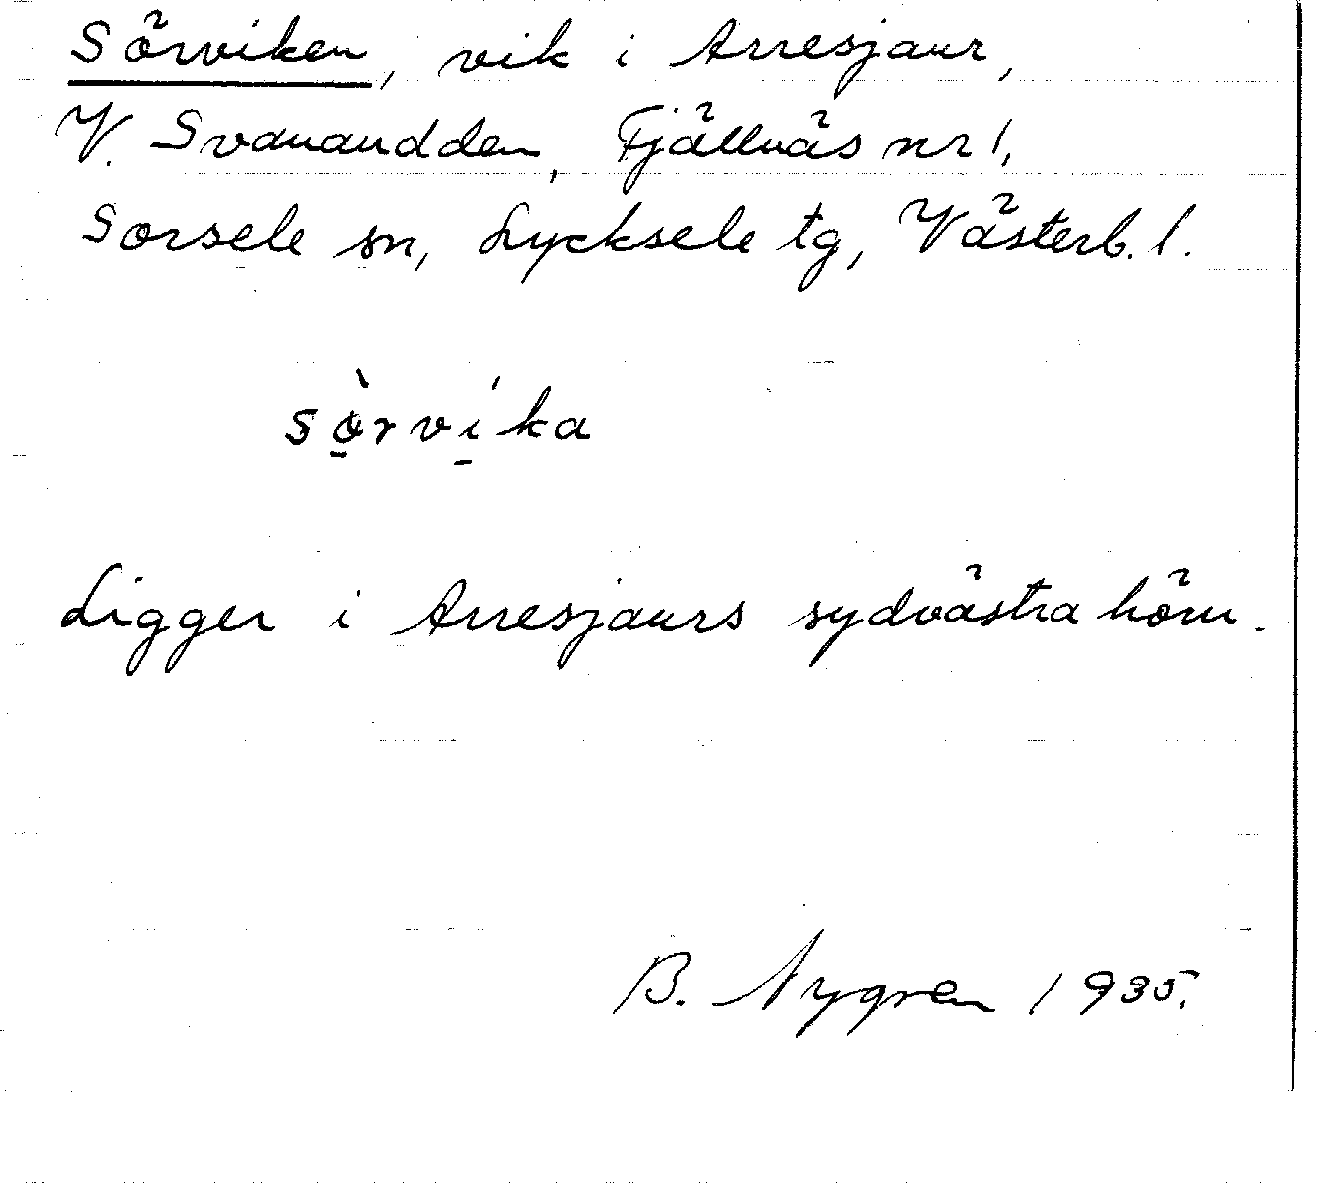 Sörviken, vik i Arresjaur,
V. Svanaudden, Fjällnäs nr 1,
Sorsele sn, Lycksele tg, Västerb. l.
sò̱rví̱ka
Ligger i Arresjaurs sydvästra hörn.
B. Nygren 1935.